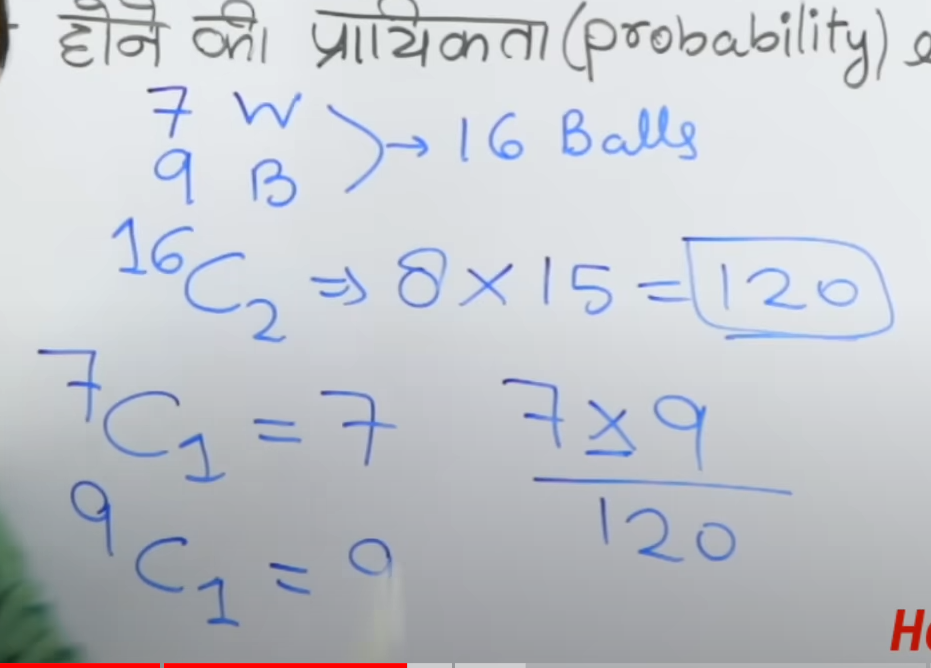 होने की प्रायिकता (probability)
7 W
9 B
→ 16 Balls
¹⁶C₂ ⇒ 8 × 15 = 120
⁷C₁ = 7
7 × 9
120
⁹C₁ = 9